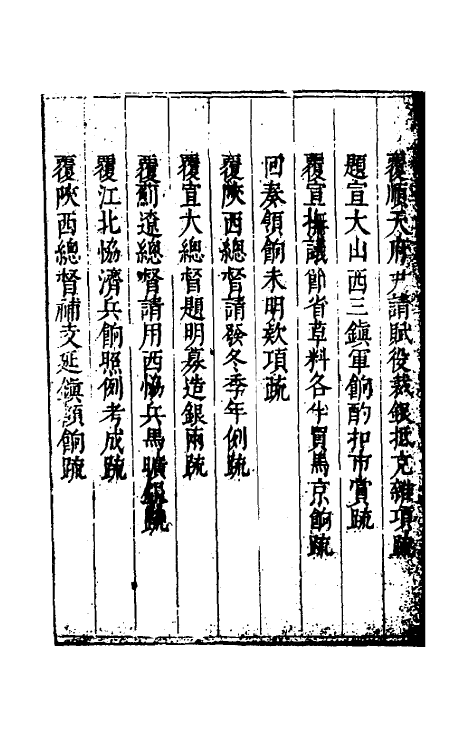 覆順天府尹請賦役裁銀抵充雜項疏
題宣大山西三鎮軍餉酌扣市賞疏
覆宣撫議節省草料各半買馬京餉疏
回奏領餉未明欵項疏
覆陝西總督請發冬季年例疏
覆宣大總督題明募造銀兩疏
覆薊遼總督請用西恊兵馬曠銀疏
覆江北恊濟兵餉照例考成疏
覆陝西總督補支延鎮額餉疏